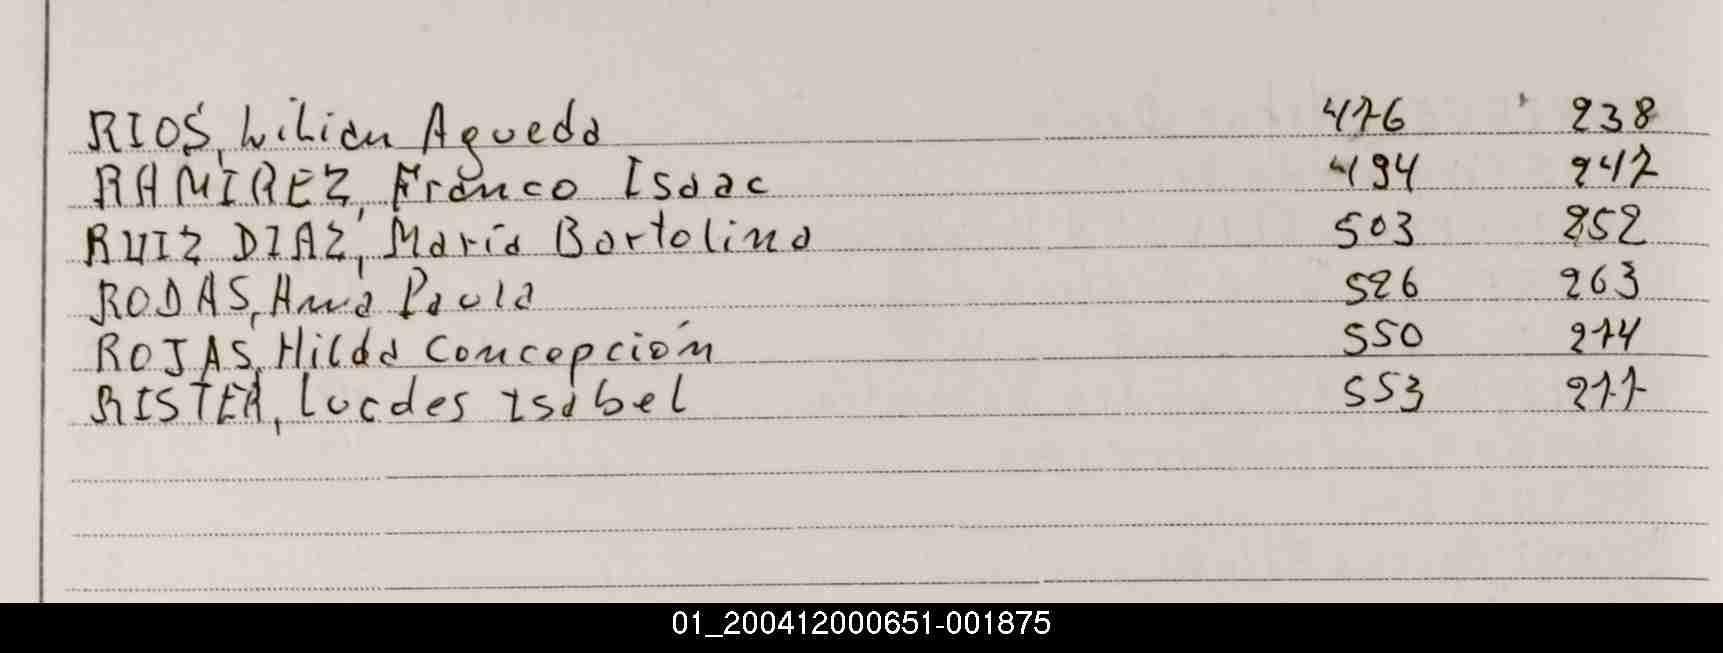 RIOS, Lilian Agueda 476 238
RAMIREZ, Franco Isaac 494 247
RUIZ DIAZ, María Bartolina 503 252
RODAS, Ana Paula 526 263
ROJAS, Hilda Concepción 550 274
RISTER, Lucdes Isabel 553 277
01_200412000651-001875